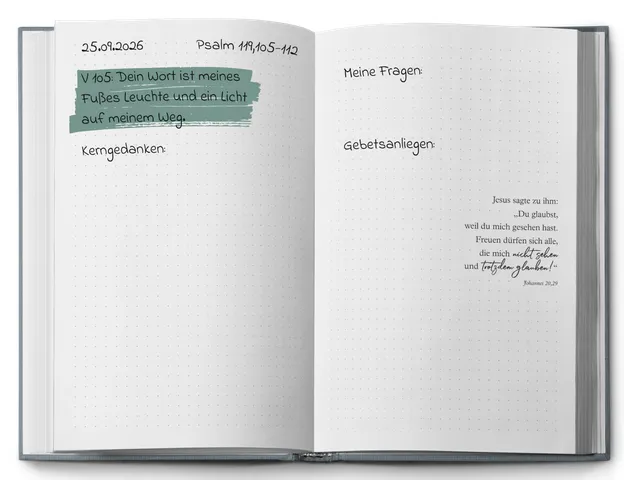 25.09.2026 Psalm 119,105-112
V 105: Dein Wort ist meines
Fußes Leuchte und ein Licht
auf meinem Weg.
Kerngedanken:
Meine Fragen:
Gebetsanliegen:
Jesus sagte zu ihm:
„Du glaubst,
weil du mich gesehen hast.
Freuen dürfen sich alle,
die mich nicht sehen
und trotzdem glauben!“
Johannes 20,29